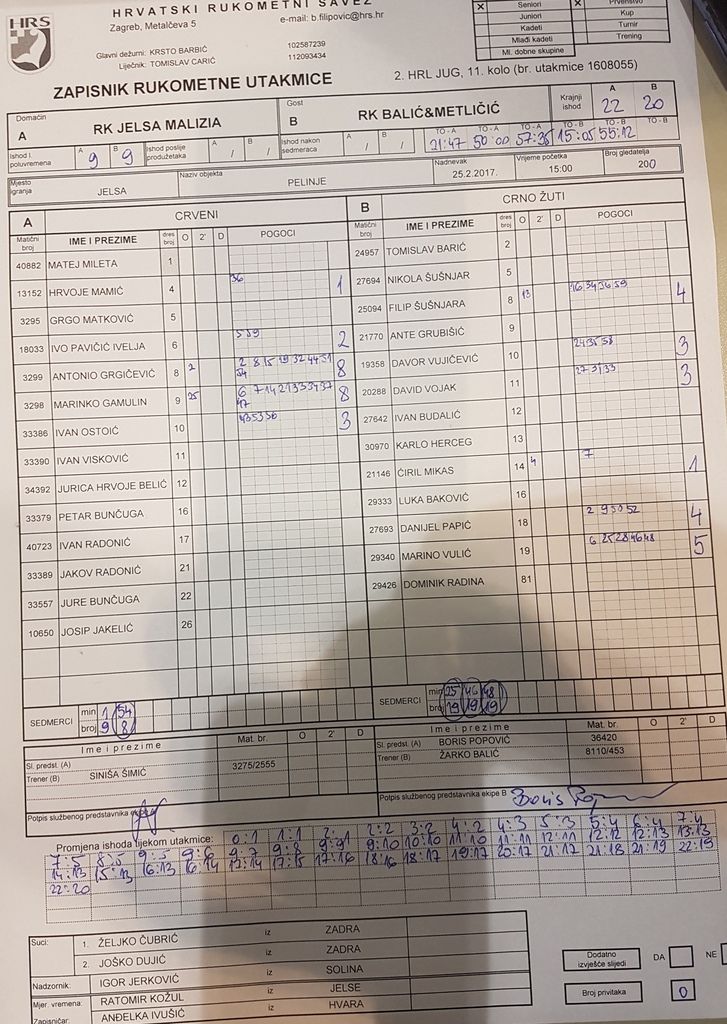 HRVATSKI RUKOMETNI SAVEZ
Zagreb, Metalčeva 5
e-mail: b.filipovic@hrs.hr
HRS
Glavni dežurni: KRSTO BARBIĆ 102587239
Liječnik: TOMISLAV CARIĆ 112093434
X Seniori X Prvenstvo
Juniori Kup
Kadeti Turnir
Mlađi kadeti Trening
Ml. dobne skupine
ZAPISNIK RUKOMETNE UTAKMICE
2. HRL JUG, 11. kolo (br. utakmice 1608055)
Domaćin A RK JELSA MALIZIA
Gost B RK BALIĆ&METLIČIĆ
Krajnji ishod A 22 B 20
Ishod I. poluvremena A 9 B 9
Ishod poslije produžetaka A / B /
Ishod nakon sedmeraca A / B /
TO - A TO - A TO - A TO - B TO - B TO - B
21:47 50:00 57:36 15:05 55:12
Mjesto igranja JELSA
Naziv objekta PELINJE
Nadnevak 25.2.2017.
Vrijeme početka 15:00
Broj gledatelja 200
A CRVENI
Matični broj IME I PREZIME dres broj O 2' D POGOCI
40882 MATEJ MILETA 1
13152 HRVOJE MAMIĆ 4 36 1
3295 GRGO MATKOVIĆ 5
18033 IVO PAVIČIĆ IVELJA 6 5 59 2
3299 ANTONIO GRGIČEVIĆ 8 2 2 8 15 19 32 44 51 54 8
3298 MARINKO GAMULIN 9 25 6 7 14 21 33 34 37 47 8
33386 IVAN OSTOIĆ 10 3
33390 IVAN VISKOVIĆ 11
34392 JURICA HRVOJE BELIĆ 12
33379 PETAR BUNČUGA 16
40723 IVAN RADONIĆ 17
33389 JAKOV RADONIĆ 21
33557 JURE BUNČUGA 22
10650 JOSIP JAKELIĆ 26
SEDMERCI min 1 54
broj 9 8
B CRNO ŽUTI
Matični broj IME I PREZIME dres broj O 2' D POGOCI
24957 TOMISLAV BARIĆ 2
27694 NIKOLA ŠUŠNJAR 5
25094 FILIP ŠUŠNJARA 8 13 16 34 36 59 4
21770 ANTE GRUBIŠIĆ 9
19358 DAVOR VUJIČEVIĆ 10 3
20288 DAVID VOJAK 11 27 31 33 3
27642 IVAN BUDALIĆ 12
30970 KARLO HERCEG 13
21146 ĆIRIL MIKAS 14 4 7 1
29333 LUKA BAKOVIĆ 16
27693 DANIJEL PAPIĆ 18 2 9 50 52 4
29340 MARINO VULIĆ 19 6 25 28 46 48 5
29426 DOMINIK RADINA 81
SEDMERCI min 25 46 48
broj 19 19 19
Ime i prezime Mat. br. O 2' D
Sl. predst. (A)
Trener (B) SINIŠA ŠIMIĆ 3275/2555
Potpis službenog predstavnika ekipe
Ime i prezime Mat. br. O 2' D
Sl. predst. (A) BORIS POPOVIĆ 36420
Trener (B) ŽARKO BALIĆ 8110/453
Potpis službenog predstavnika ekipe B Boris
Promjena ishoda tijekom utakmice: 0:1 1:1 2:1 2:2 3:2 4:2 4:3 5:3 5:4 6:4 7:4
7:5 8:5 9:5 9:6 9:7 9:8 9:9 9:10 10:10 11:10 11:11 12:11 12:12 12:13 13:13
14:13 15:13 16:13 16:14 17:14 17:15 17:16 18:16 18:17 19:17 20:17 21:17 21:18 21:19 22:19
22:20
Suci: 1. ŽELJKO ČUBRIĆ iz ZADRA
2. JOŠKO DUJIĆ iz ZADRA
Nadzornik: IGOR JERKOVIĆ iz SOLINA
Mjer. vremena: RATOMIR KOŽUL iz JELSE
Zapisničar: ANĐELKA IVUŠIĆ iz HVARA
Dodatno izvješće slijedi DA NE
Broj privitaka 0